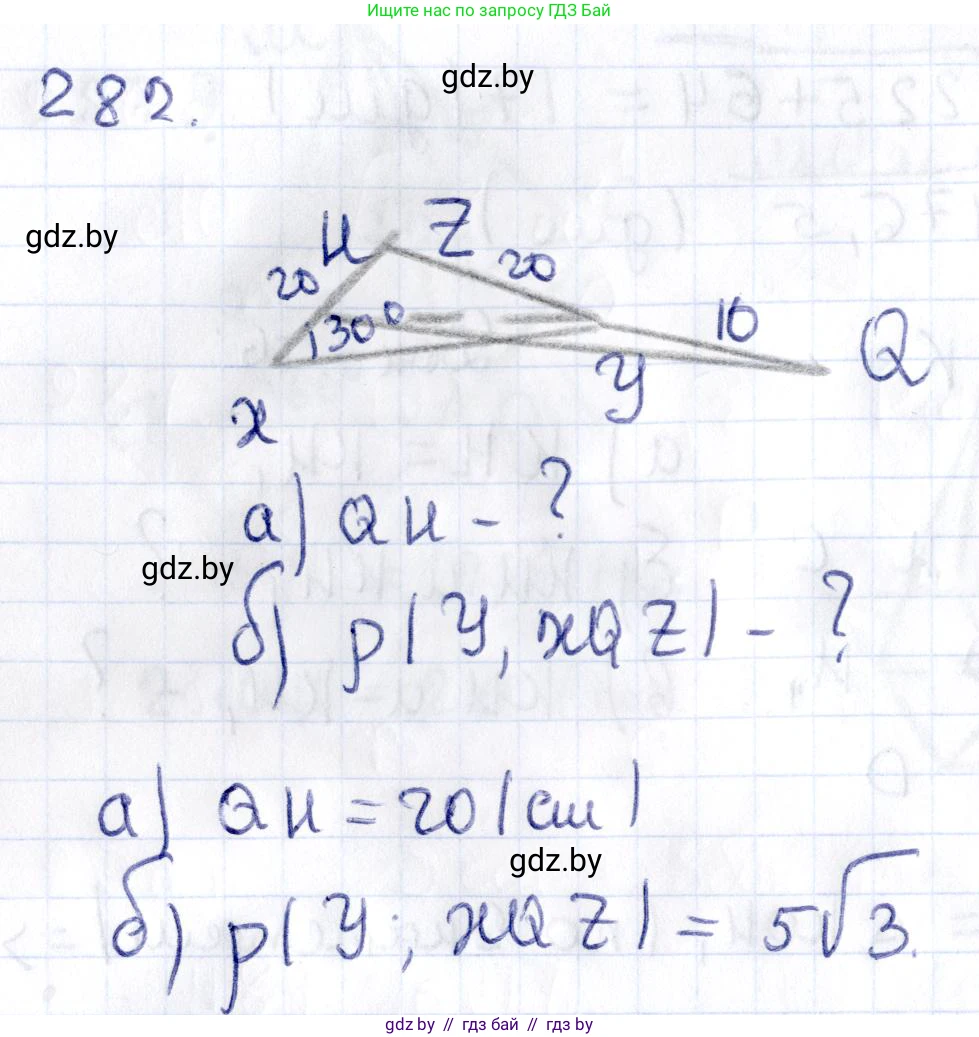 Ищите нас по запросу ГДЗ Бай
282.
gdz.by
gdz.by
H Z
20 20
130° 10
Q
y
x
а) QH - ?
gdz.by
б) ρ(y, xQZ) - ?
а) QH = 20 (см)
gdz.by
б) ρ(y; xQZ) = 5√3.
gdz.by // гдз бай // gdz.by